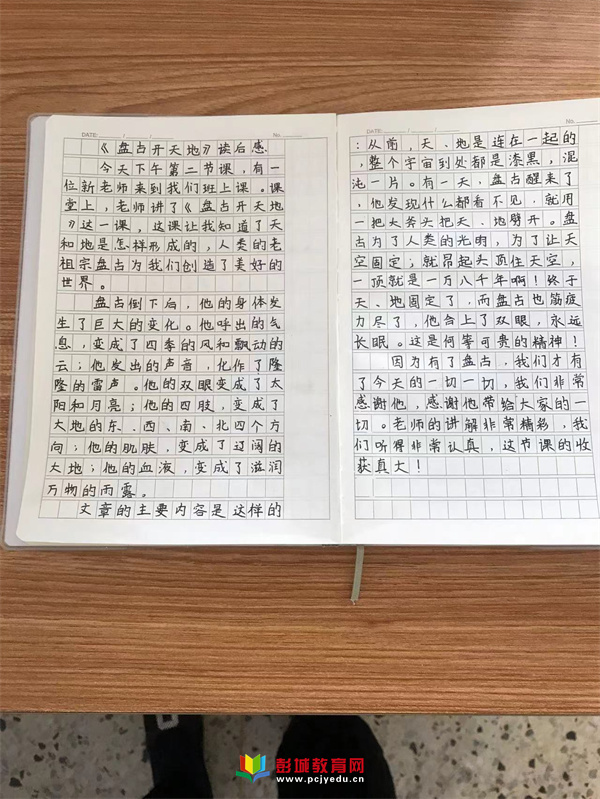 DATE: / /
No.
《盘古开天地》读后感
今天下午第二节课，有一
位新老师来到我们班上课。课
堂上，老师讲了《盘古开天地
》这一课，这课让我知道了天
和地是怎样形成的，人类的老
祖宗盘古为我们创造了美好的
世界。
盘古倒下后，他的身体发
生了巨大的变化。他呼出的气
息，变成了四季的风和飘动的
云；他发出的声音，化作了隆
隆的雷声。他的双眼变成了太
阳和月亮；他的四肢，变成了
大地的东、西、南、北四个方
向；他的肌肤，变成了辽阔的
大地；他的血液，变成了滋润
万物的雨露。
文章的主要内容是这样的
DATE: / /
No.
：从前，天、地是连在一起的
，整个宇宙到处都是漆黑，混
沌一片。有一天，盘古醒来了
，他发现什么都看不见，就用
一把大斧头把天、地劈开。盘
古为了人类的光明，为了让天
空固定；就昂起头顶住天空，
一顶就是一万八千年啊！终于
天、地固定了，而盘古也筋疲
力尽了，他合上了双眼，永远
长眠。这是何等可贵的精神！
因为有了盘古，我们才有
了今天的一切一切，我们非常
感谢他，感谢他带给大家的一
切。老师的讲解非常精彩，我
们听得非常认真，这节课的收
获真大！
彭城教育网
www.pcjyedu.cn